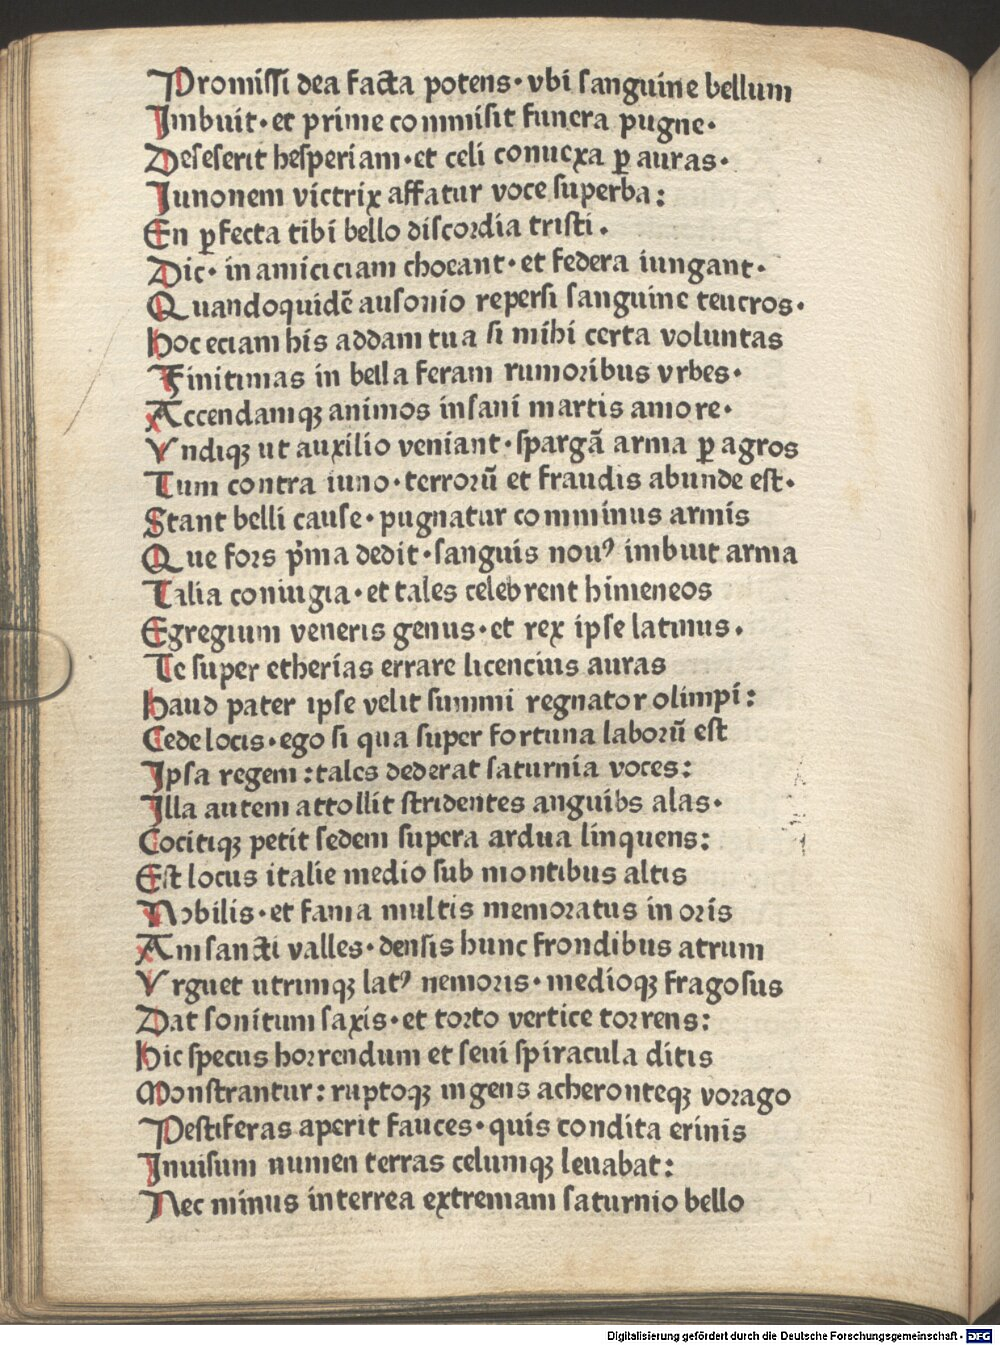 Promissi dea facta potens· vbi sanguine bellum
Imbuit· et prime commisit funera pugne·
Deseserit hesperiam· et celi conuexa ꝑ auras·
Iunonem victrix affatur voce superba:
En ꝑfecta tibi bello discordia tristi·
Dic· in amiciciam choeant· et federa iungant·
Quandoquidē ausonio repersi sanguine teucros·
hoc eciam his addam tua si mihi certa voluntas
Finitimas in bella feram rumoribus vrbes·
Accendamqꝫ animos insani martis amore·
Vndiqꝫ ut auxilio veniant· spargā arma ꝑ agros
Tum contra iuno· terrorū et fraudis abunde est·
Stant belli cause· pugnatur comminus armis
Que fors pͥma dedit· sanguis nouꝰ imbuit arma
Talia coniugia· et tales celebrent himeneos
Egregium veneris genus· et rex ipse latinus·
Te super etherias errare licencius auras
haud pater ipse velit summi regnator olimpi:
Cede locis· ego si qua super fortuna laborū est
Ipsa regem: tales dederat saturnia voces:
Illa autem attollit stridentes anguibs alas·
Cocitiqꝫ petit sedem supera ardua linquens:
Est locus italie medio sub montibus altis
Nobilis· et fama multis memoratus in oris
Amsancti valles· densis hunc frondibus atrum
Vrguet utrimqꝫ latꝰ nemoris· medioqꝫ fragosus
Dat sonitum saxis· et torto vertice torrens:
hic specus horrendum et seui spiracula ditis
Monstrantur: ruptoqꝫ ingens acheronteqꝫ vorago
Pestiferas aperit fauces· quis condita erinis
Inuisum numen terras celumqꝫ leuabat:
Nec minus interrea extremam saturnio bello
Digitalisierung gefördert durch die Deutsche Forschungsgemeinschaft - DFG